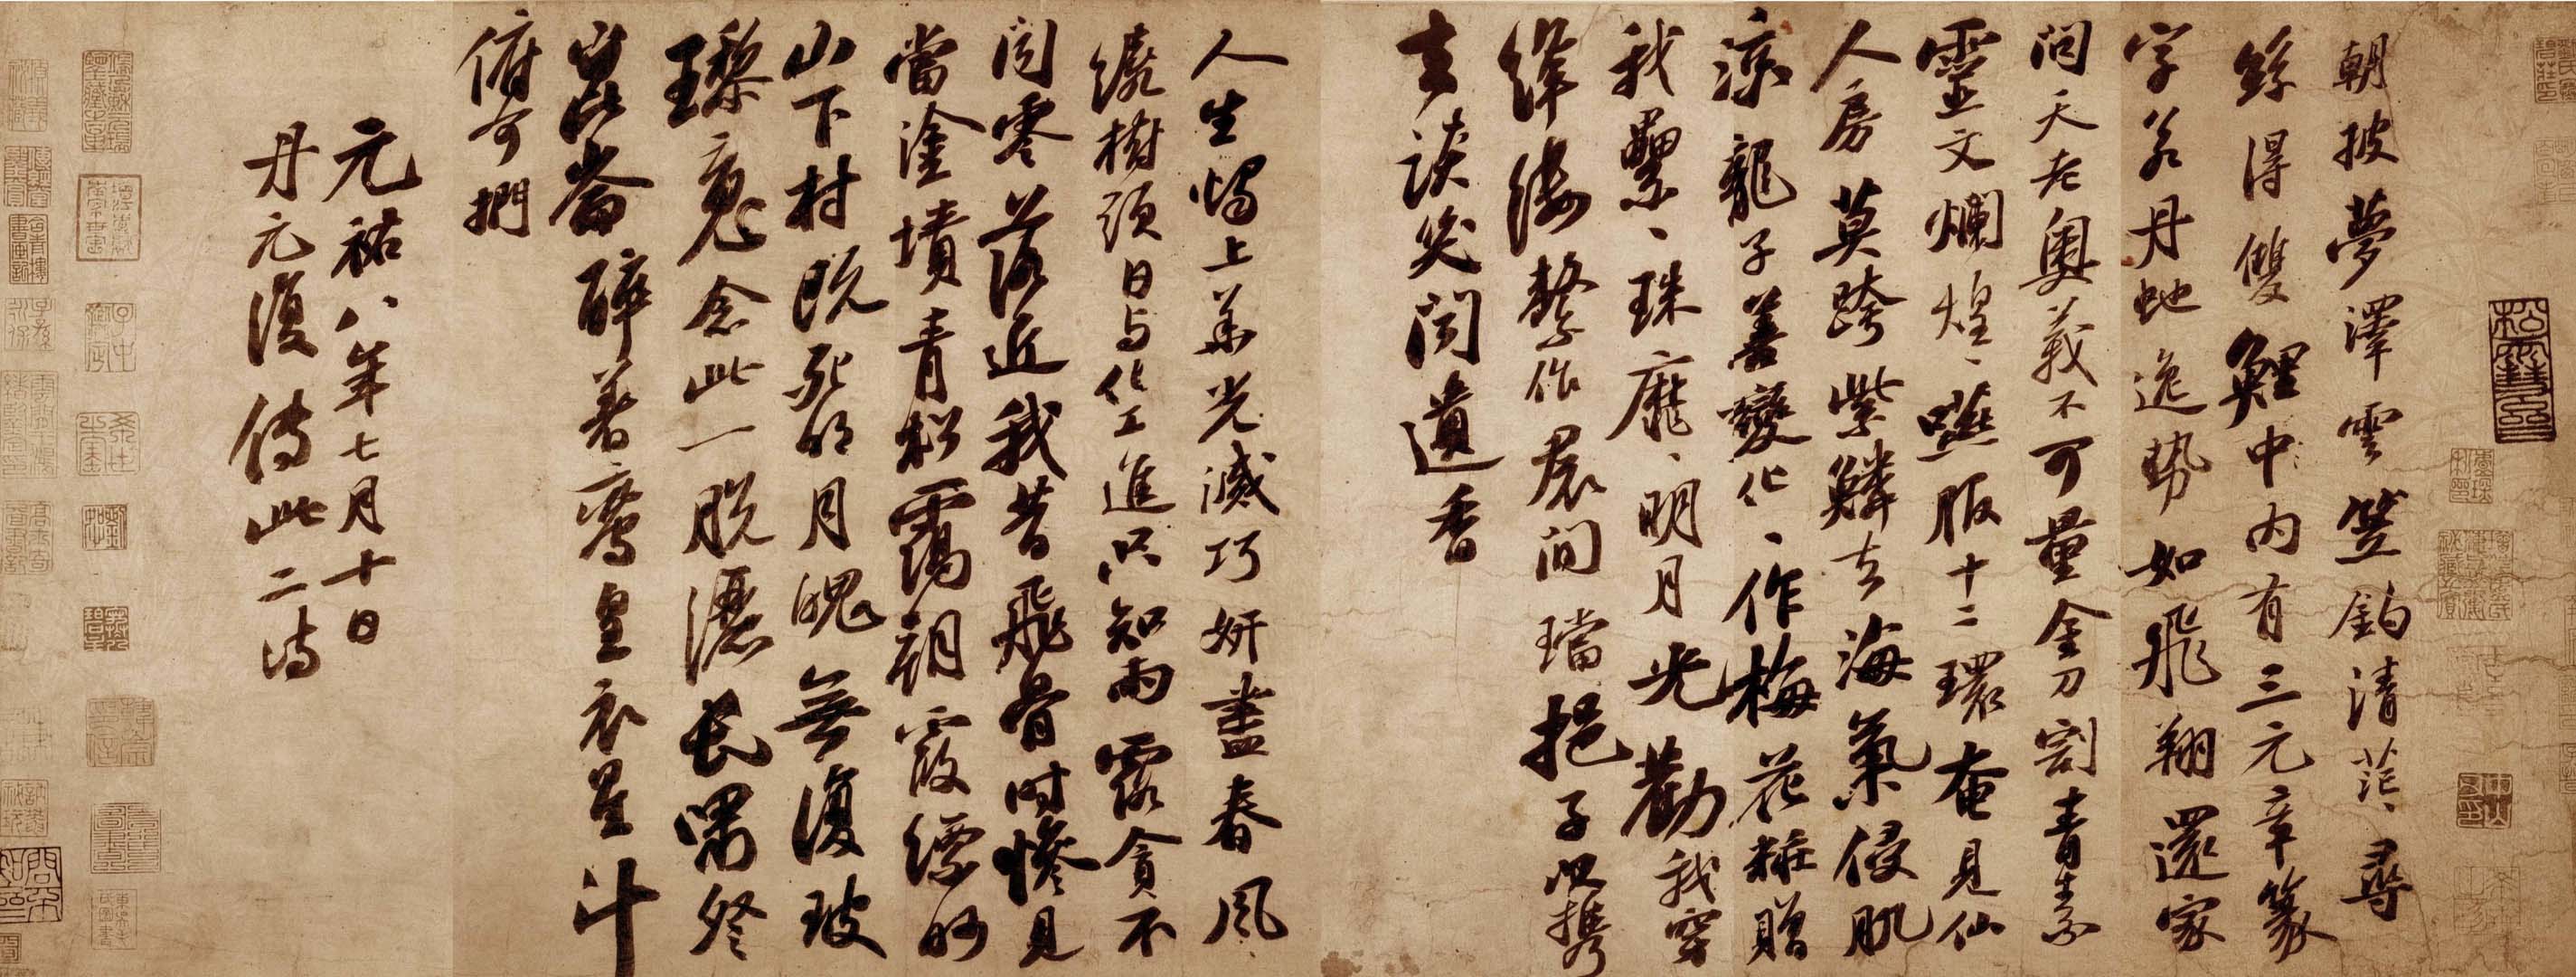 朝披夢澤雲笠釣清茫〻尋
絲得雙鯉中內有三元章篆
字若丹虵逸勢如飛翔還家
問天老奧義不可量金刀割青素
靈文爛煌〻嚥服十二環奄見仙
人房莫跨紫鱗去海氣侵肌
涼龍子善變化〻作梅花粧贈
我纍〻珠靡〻明月光勸我穿
絳縷繫作裙間璫挹子以攜
去談笑聞遺香
人生燭上華光滅巧妍盡春風
繞樹頭日与化工進只知雨露貪不
聞零落近我昔飛骨時慘見
當塗墳青松靄朝霞縹緲
山下村既死明月魄無復玻
瓈魂念此一脫灑長嘯終
崑崙醉著鸞皇衣星斗
俯可捫
元祐八年七月十日
丹元復傳此二詩